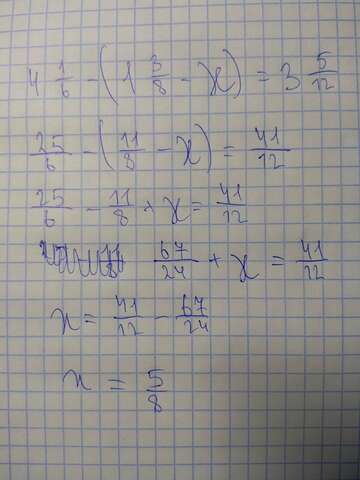 4 1/6 - (1 3/8 - x) = 3 5/12
25/6 - (11/8 - x) = 41/12
25/6 - 11/8 + x = 41/12
67/24 + x = 41/12
x = 41/12 - 67/24
x = 5/8